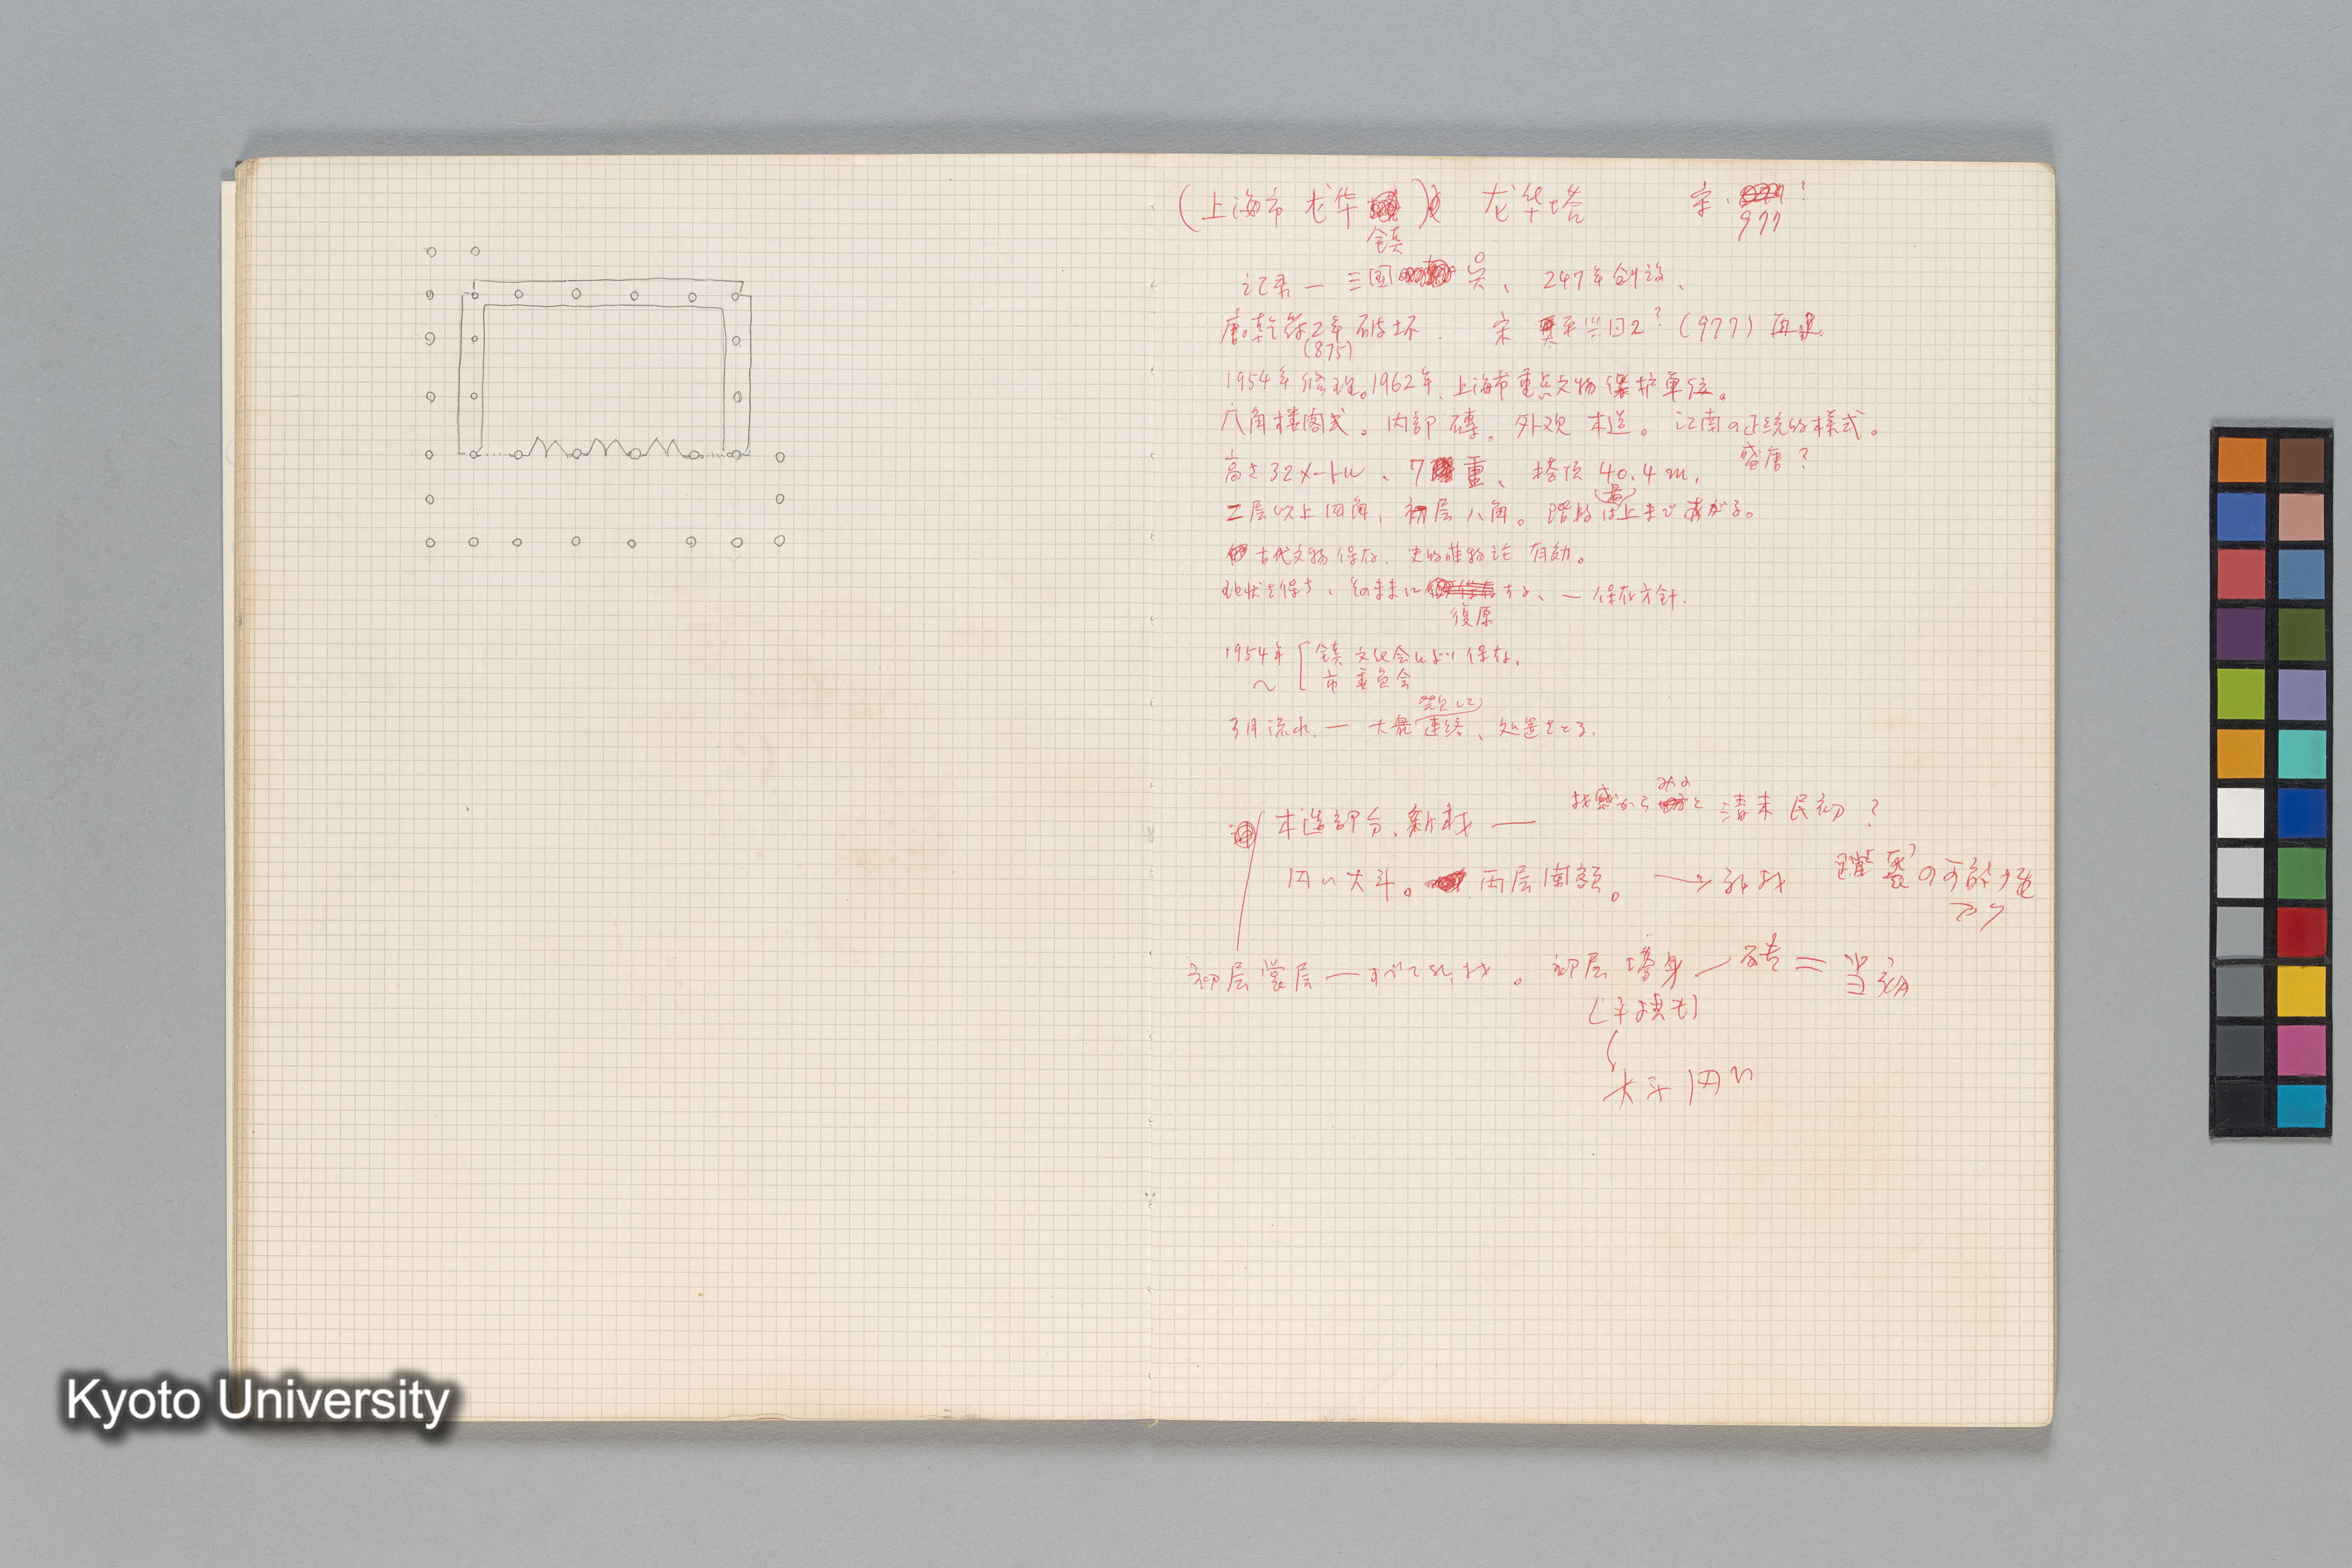 (上海市 龙华鎮) 龙华塔 宋、977?
記录一 三国 呉、247年創設、
唐。乾符2年破坏. 宋 平兴国2?(977)再建
(875)
1954年修理。1962年、上海市重点文物保护単位。
八角楼阁式。内部磚。外观木造。江南の正統的様式。
盛唐?
高さ32メートル、7重、塔頂40.4m.
二層以上四角、初層八角。階段は(最)上まであがる。
古代文物保存、史的唯物論 有効。
現状を保ち、そのままに復原する、一 保存方針.
1954年〜 鎮文化会により保存.
市委員会
3月 一 大衆 連絡、処置をとる.
木造部分、新材 ― 材感からみると 清末民初?
円い大斗。両層闌額。→新材 の可能性
アリ
初層裳層―すべて新材。初層塔身―砖=当初
大斗円い
Kyoto University